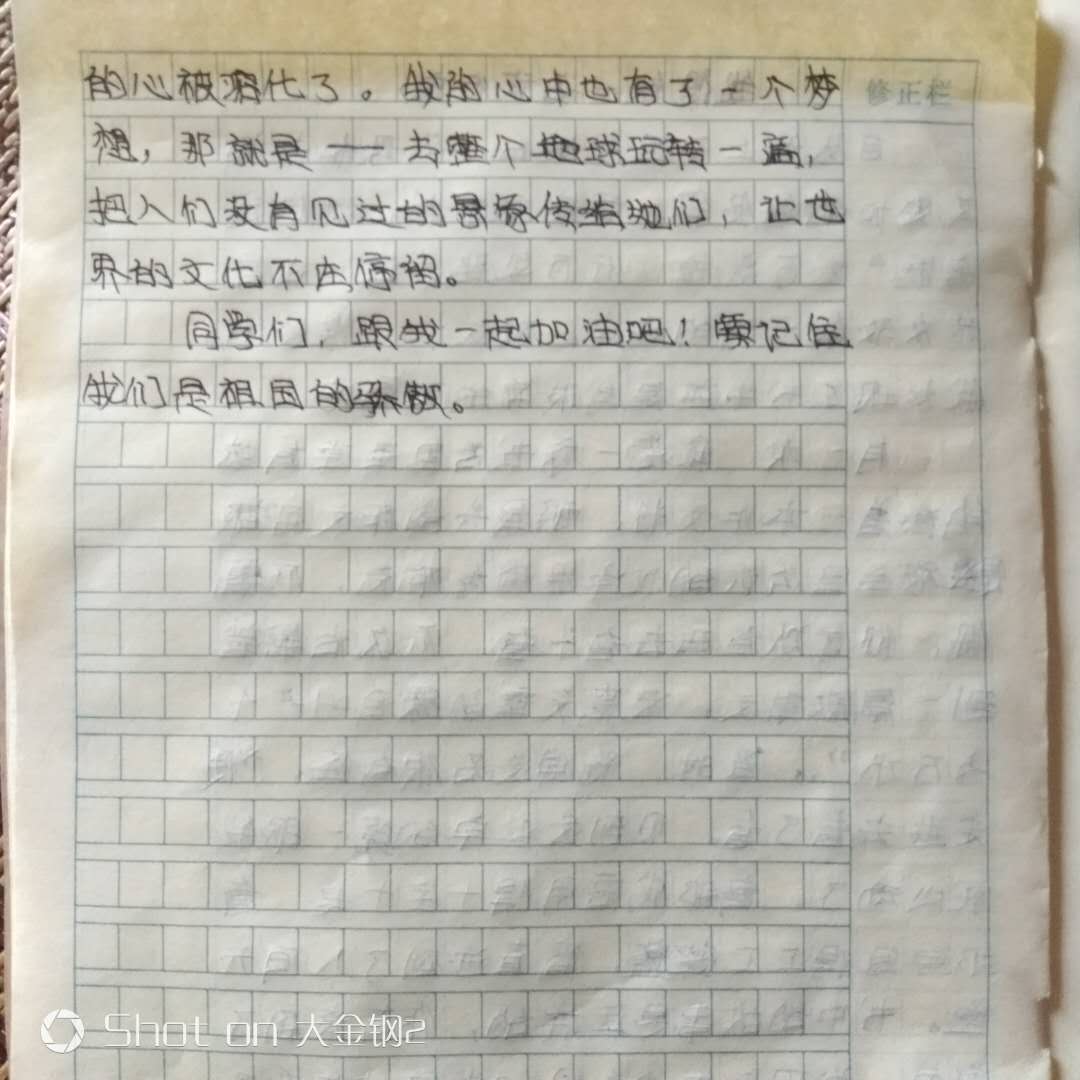 的心被溶化了。我的心中也有了一个梦
修正栏
想，那就是——去整个地球玩转一遍，
把人们没有见过的景象传给她们，让世
界的文化不在停留。
同学们，跟我一起加油吧！要记住
我们是祖国的。
Shot on 大金钢2